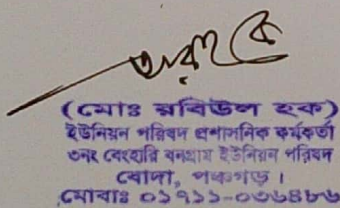 (মোঃ রবিউল হক)
ইউনিয়ন পরিষদ প্রশাসনিক কর্মকর্তা
৩নং বেংহারি বনগ্রাম ইউনিয়ন পরিষদ
বোদা, পঞ্চগড় ।
মোবাঃ ০১৭১১-০৩৬৪৮৬